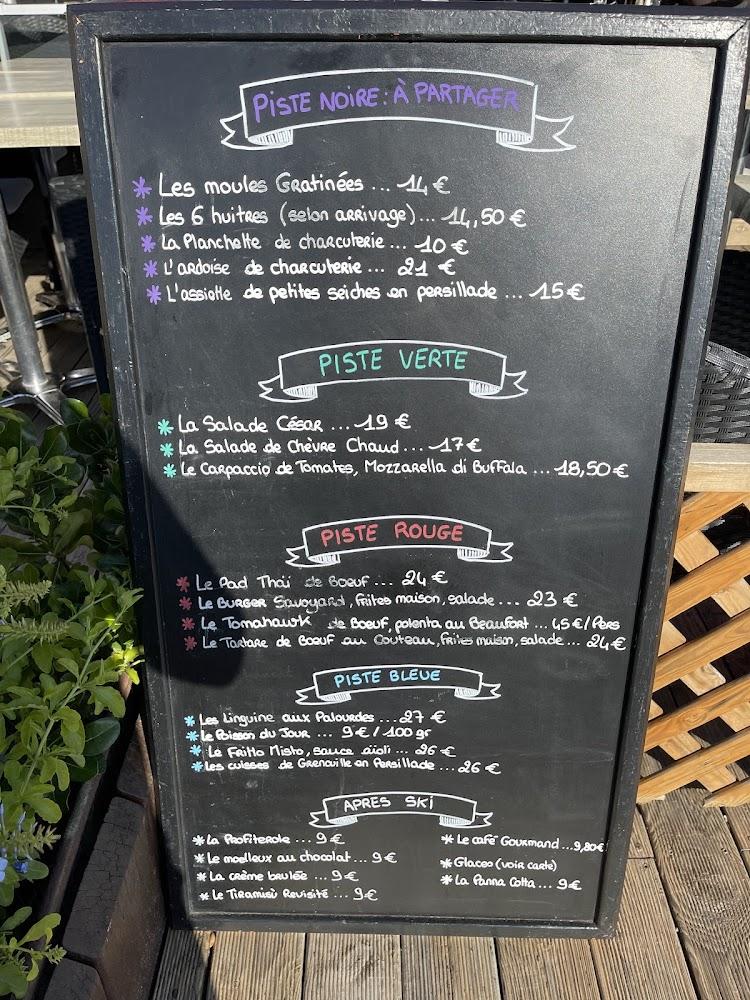 PISTE NOIRE : À PARTAGER
* Les moules Gratinées ... 14 €
* Les 6 huîtres (selon arrivage) ... 14,50 €
* La Planchette de charcuterie ... 10 €
* L'ardoise de charcuterie ... 21 €
* L'assiette de petites seiches en persillade ... 15 €
PISTE VERTE
* La Salade César ... 19 €
* La Salade de Chèvre Chaud ... 17 €
* Le Carpaccio de Tomates, Mozzarella di Buffala ... 18,50 €
PISTE ROUGE
* Le Pad Thaï de Boeuf ... 24 €
* Le Burger Savoyard, frites maison, salade ... 23 €
* Le Tomahawk de Boeuf, polenta au Beaufort ... 45 € / Pers
* Le Tartare de Boeuf au Couteau, frites maison, salade ... 24 €
PISTE BLEUE
* Les Linguine aux Palourdes ... 27 €
* Le Poisson du Jour ... 9 € / 100 gr
* Le Fritto Misto, sauce aïoli ... 26 €
* Les cuisses de Grenouille en Persillade ... 26 €
APRES SKI
* La Profiterole ... 9 €
* Le moelleux au chocolat ... 9 €
* La crème brulée ... 9 €
* Le Tiramisù Revisité ... 9 €
* Le café Gourmand ... 9,80 €
* Glaces (voir carte)
* La Panna Cotta ... 9 €